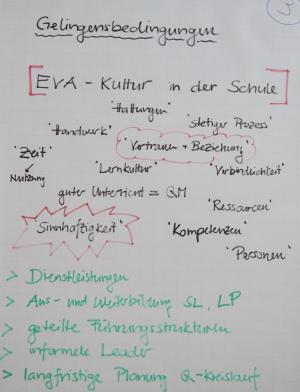 Gelingensbedingungen
[EVA - Kultur in der Schule]
"Haltungen"
"stetiger Prozess"
"Handwerk"
"Vertrauen + Beziehung"
"Zeit"
Nutzung
"Lernkultur"
"Verbindlichkeit"
guter Unterricht = QM
"Ressourcen"
"Sinnhaftigkeit"
"Kompetenzen"
"Personen"
> Dienstleistungen
> Aus- und Weiterbildung SL, LP
> geteilte Führungsstrukturen
> informele Leader
> langfristige Planung Q-Kreislauf